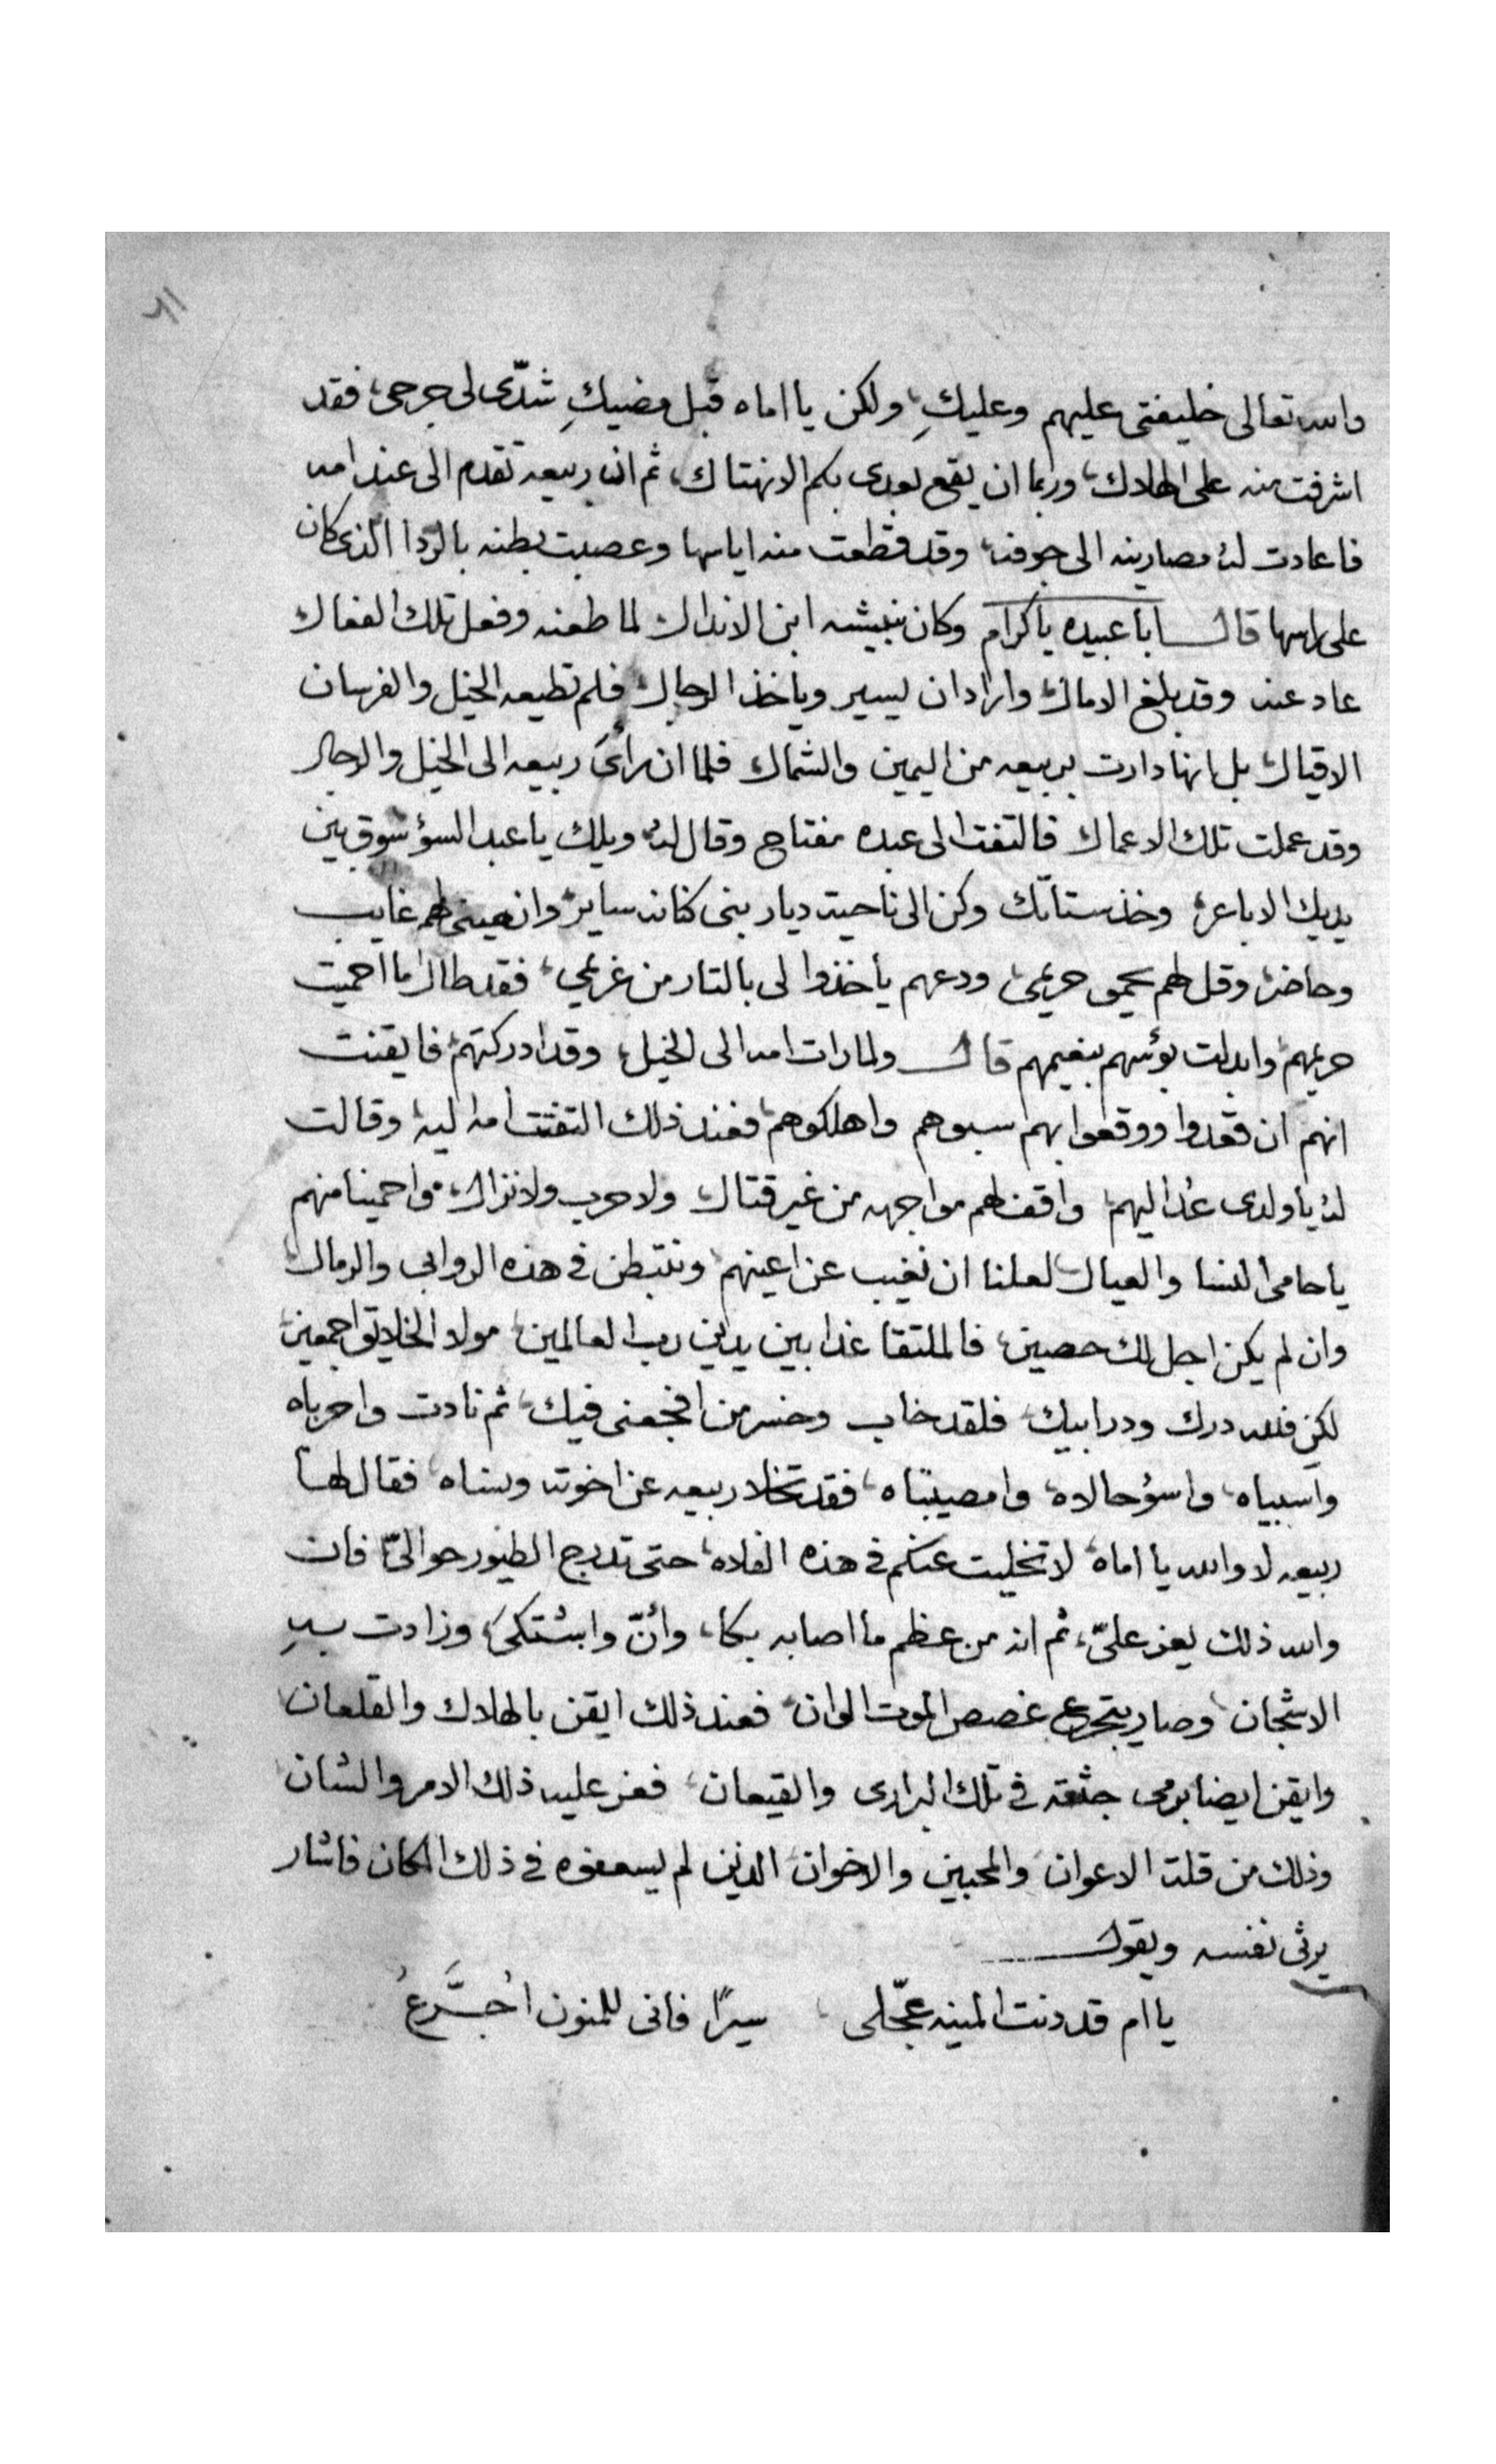 والله تعالى خليفتى عليهم وعليكِ، ولكن يا اماه قبل مضيكِ شدّى لى جرحى، فقد
اشرفت منه على الهلاك، وربما ان يقع بعدى بكم الانهتاك، ثم انه ربيعه تقدم الى عند امه
فاعادت له مصارينه الى جوفه، وقد قطعت منه اياسها وعصبت بطنه بالرّدا الذى كان
على راسها قال ابا عبيده يا كرام وكان نبيشه ابن الانذال لما طعنه وفعل تلك الفعال
عاد عنه وقد بلغ الامال، واراد ان يسير وياخذ الرجال، فلم تطيعه الخيل والفرسان
الاقيال، بل انها دارت بربيعه من اليمين والشمال، فلما ان رأىَ ربيعه الى الخيل والرجال
وقد عملت تلك الاعمال فالتفت الى عبده مفتاح وقال له، ويلك يا عبد السؤ سوق بين
يديك الاباعر، وخذ ستاتك وكن الى ناحية ديار بنى كنانه ساير، وانعينى لهم غايب
وحاضر، وقل لهم تحمى حريمى، ودعهم يأخذوا لى بالتار من غريمي، فقد طال ما احميت
حريمهم، وابدلت بؤسهم بنعيمهم قال ولما رات امه الى الخيل، وقد ادركتهم، فايقنت
انهم ان قعدوا ووقعوا بهم سبوهم واهلكوهم، فعند ذلك التفتت امه اليه، وقالت
له يا ولدى عُد اليهم، واقف لهم مواجهه من غير قتال، ولا حرب ولا نزال، واحمينا منهم
يا حامى النسا والعيال، لعلنا ان نغيب عن اعينهم، ونتبطن فى هذه الروابى والرمال،
وان لم يكن اجل لك حصين، فالملتقا غدا بين يدين رب العالمين، مولا الخلايق اجمعين،
لكن فلله درك ودر ابيك، فلقد خاب وخسر من افجعنى فيك، ثم نادت واحرباه
واسبياه، واسؤحالاه، وامصيبتاه، فقد تخلا ربيعه عن اخوته ونساه، فقال لها
ربيعه لا والله يا اماه، لا تخليت عنكم فى هذه الفلاه، حتى تدرج الطيور حوالىّ، فان
والله ذلك يعز علىّ، ثم انه من عظم ما اصابه بكا، وأنّ واشتكىَ، وزادت به
الاشجان، وصار يتجرع غصص الموت الوان، فعند ذلك ايقن بالهلاك والقلعان،
وايقن ايضا برمى جثته فى تلك البرارى والقيعان، فعز عليه ذلك الامر والشان
وذلك من قلة الاعوان والمحبين والاخوان الذين لم يسعفوه فى ذلك المكان فاشار
يرثى نفسه ويقول
يا ام قد دنت المنيه عجّلى سيرًا فانى للمنون اُجَرَّعُ